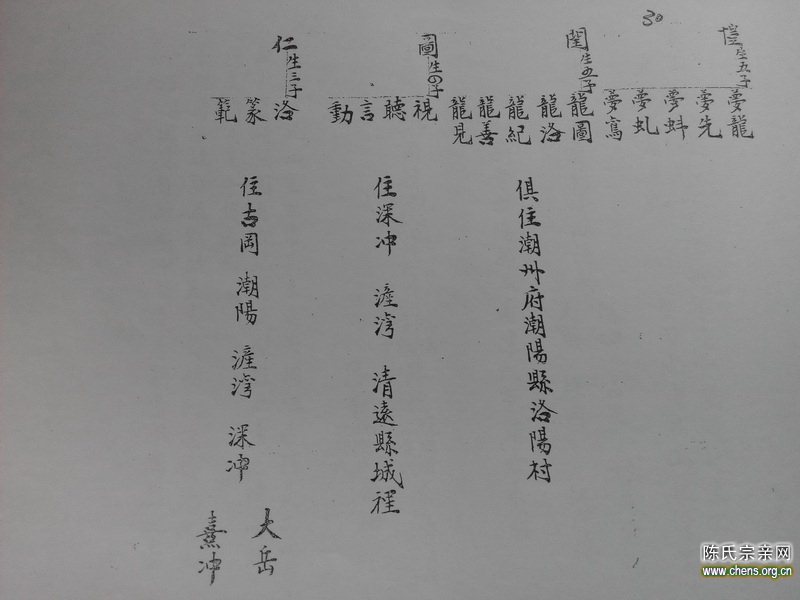 30
愷生五子
夢龍
夢先
夢蚪
夢虬
夢鸾
閏生五子
龍圖
龍洛
龍紀
龍善
龍見
俱住潮州府潮陽縣洛陽村
圖生四子
視
聽
言
動
住深冲 滘湾 清遠縣城裡
仁生三子
洛
篆
範
住吉岡 潮陽 滘湾 深冲
大岳
熹冲
陈氏宗亲网
www.chens.org.cn